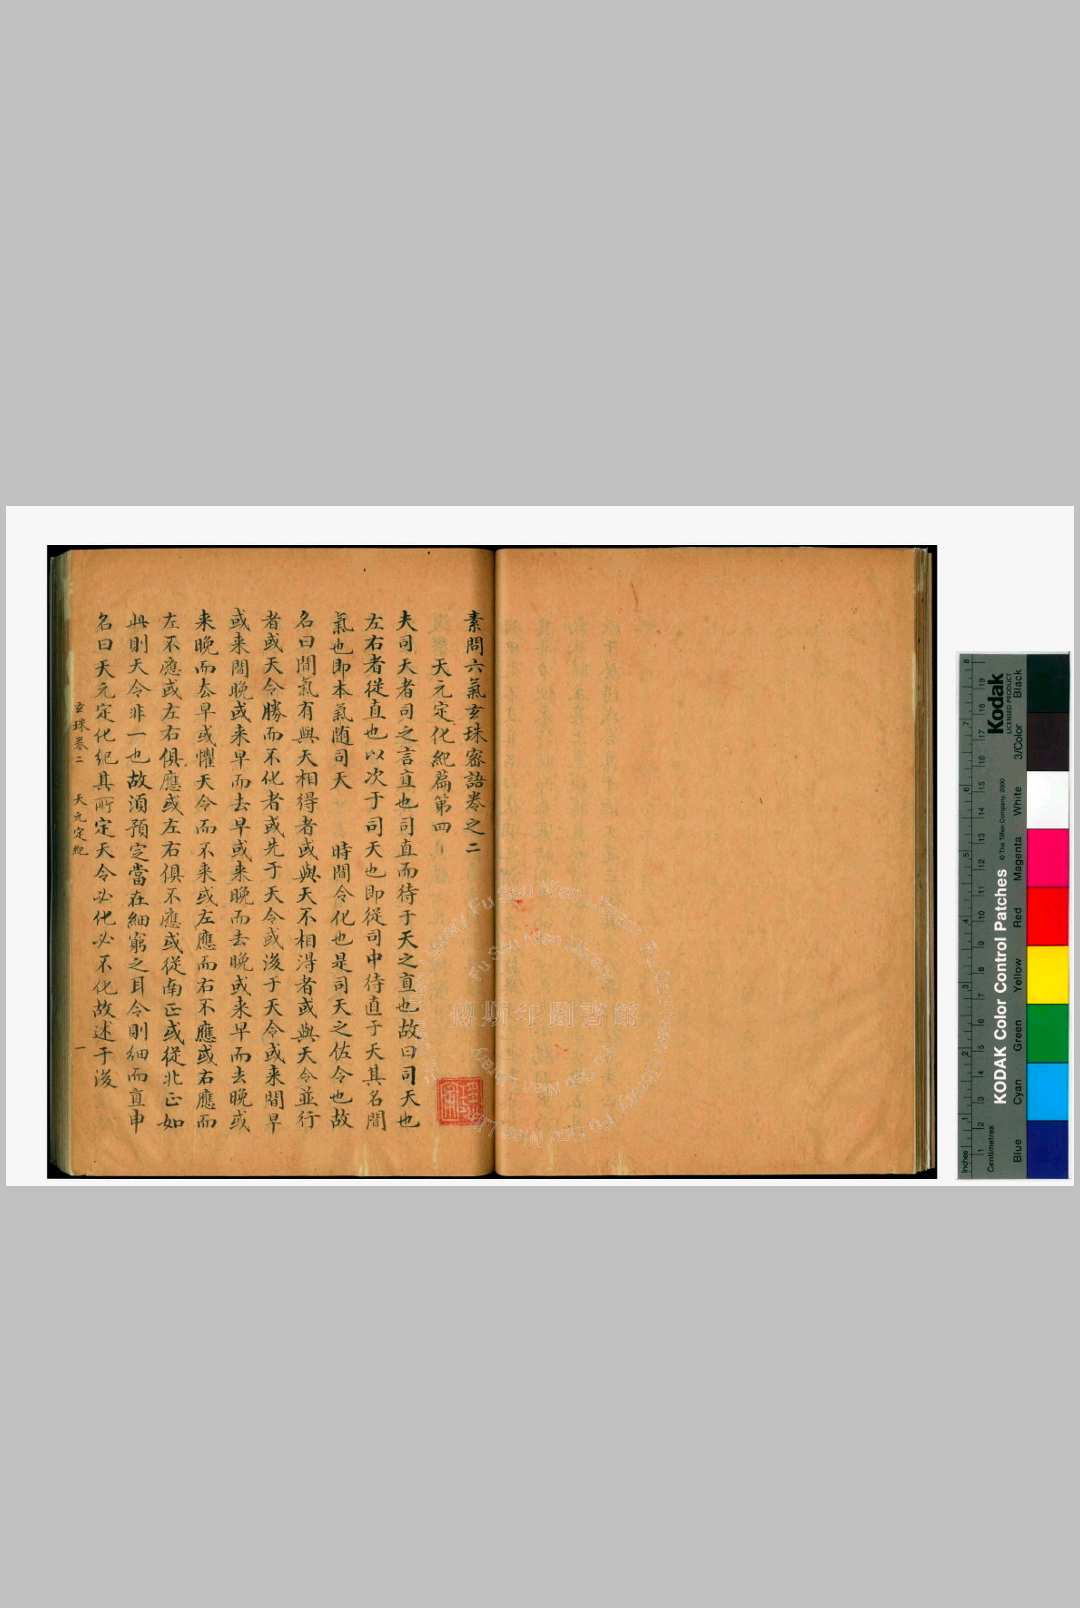 素問六氣玄珠密語卷之二
天元定化紀扁第四
夫司天者司之言直也司直而待于天之直也故曰司天也
左右者從直也以次于司天也即從司中待直于天其名間
氣也即本氣随司天 時間令化也是司天之佐令也故
名曰間氣有與天相得者或與天不相得者或與天令並行
者或天令勝而不化者或先于天令或後于天令或来間早
或来間晚或来早而去早或来晚而去晚或来早而去晚或
来晚而去早或懼天令而不来或左應而右不應或右應而
左不應或左右俱應或左右俱不應或從南正或從北正如
此則天令非一也故湏預定當在細窮之耳令則細而直申
名曰天元定化紀其所定天令必化必不化故述于後
玄珠卷二 天元定紀 一
傅斯年圖書館
KODAK Color Control Patches
Kodak
LICENSED PRODUCT
© The Tiffen Company, 2000
Black
3/Color
White
Magenta
Red
Yellow
Green
Cyan
Blue
Inches
Centimetres